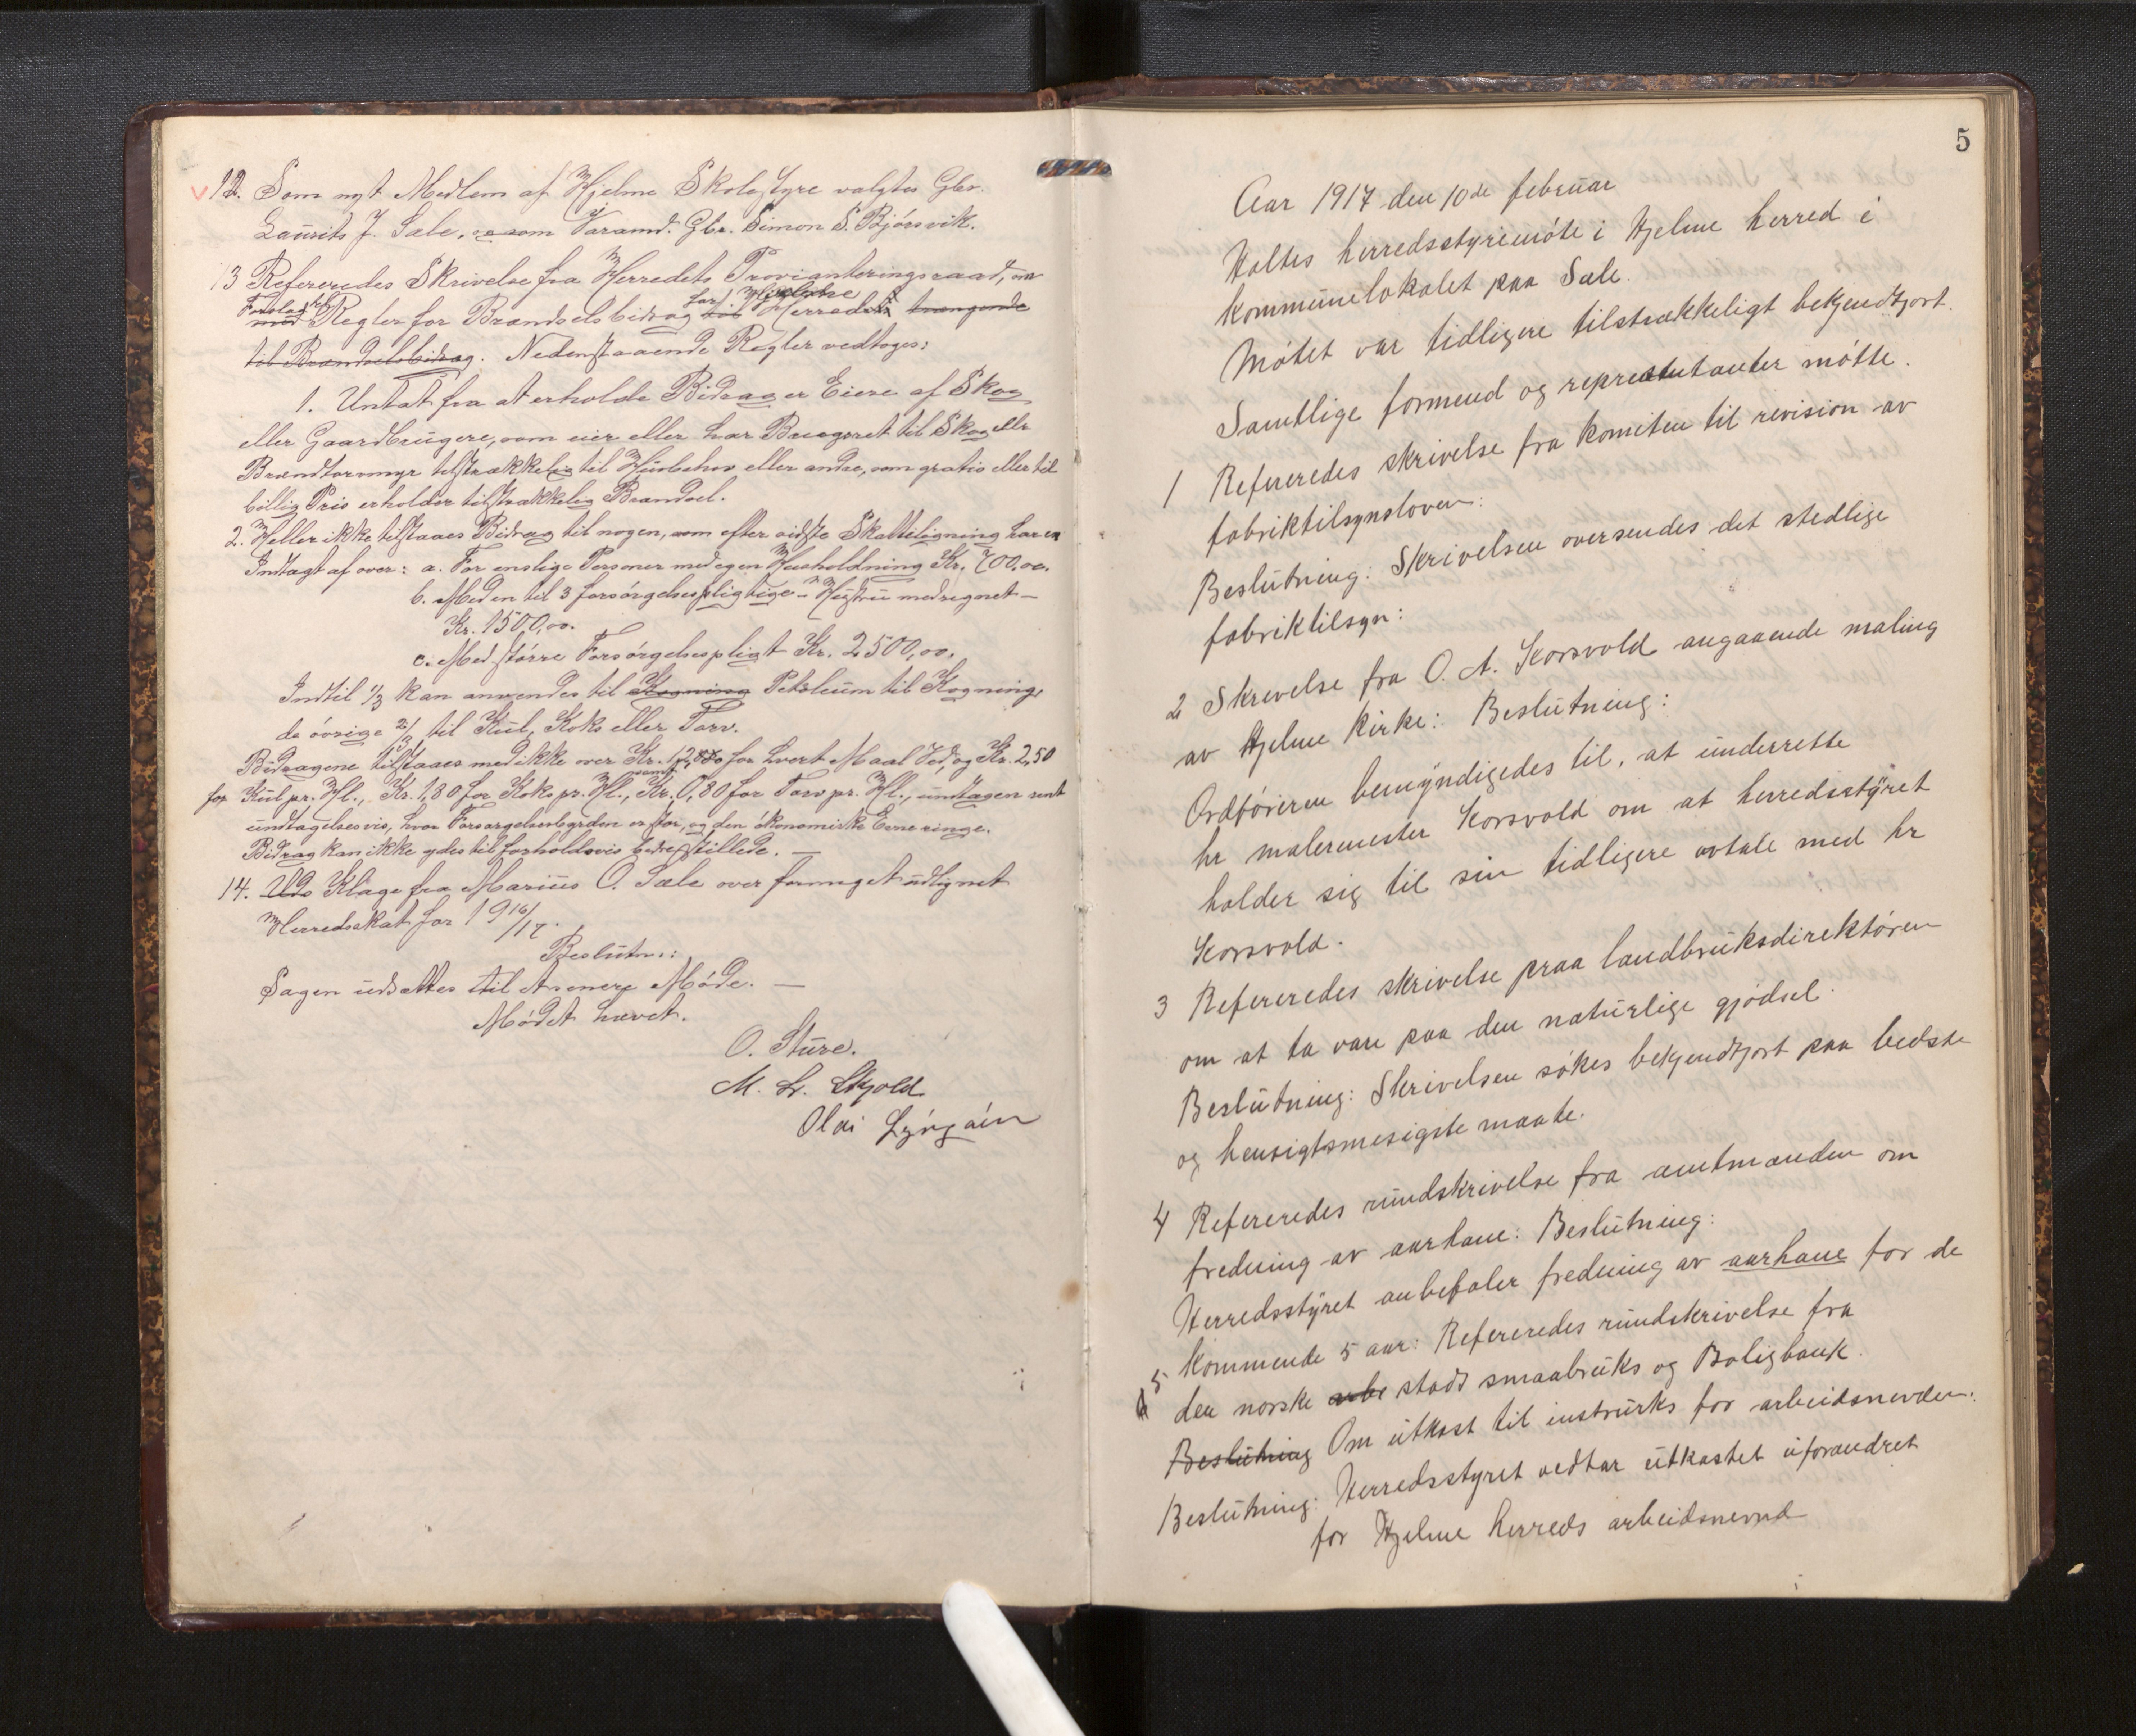 12. Som nyt Medlem af Hjelme Skolestyre valgtes Gbr.
Laurits J. Sæle, og som Varamd. Gbr. Simon S. Bjørsvik.
13 Refereredes Skrivelse fra Herredets Provianteringsraad, om
Forslag til
med Regler for Brændselsbidrag for Herredets trængende
til Brændselsbidrag. Nedenstaaende Regler vedtoges:
1. Untat fra at erholde Bidrag er Eiere af Skog
eller Gaardbrugere, som eier eller har Brugsret til Skog eller
Brændtorvmyr tilstrækkelig til Husbehov eller andre, som gratis eller til
billig Pris erholder tilstrækkelig Brændsel.
2. Heller ikke tilstaaes Bidrag til nogen, som efter sidste Skatteligning har en
Indtægt af over: a. For enslige Personer med egen Husholdning Kr. 700,00.
b. Med en til 3 forsørgelsespligtige - Hustru medregnet -
Kr. 1500,00.
c. Med større Forsørgelsespligt Kr. 2500,00.
Indtil 1/3 kan anvendes til Kogning Petroleum til Kogning,
de øvrige 2/3 til Kul, Koks eller Torv.
Bidragene tilstaaes med ikke over Kr. for hvert Maal Ved, og Kr. 2,50
for Kul pr. Hl., Kr. 1,80 for Koks pr. Hl., samt Kr. 0,80 for Torv pr. Hl., undtagen rent
undtagelsesvis, hvor Forsørgelsesbyrden er stor, og den økonomiske Evne ringe.
Bidrag kan ikke ydes til forholdsvis bedre stillede. —
14. Uds Klage fra Marius O. Sæle over formeget udlignet
Herredsskat for 1916/17.
Beslutn.:
Sagen udsættes til et senere Møde. —
Mødet hævet.
O. Sture.
M. Skjold
Olai
5
Aar 1917 den 10de februar
Holtes herredsstyremøte i Hjelme herred i
kommunelokalet paa Sæle.
Møtet var tidligere tilstrækkeligt bekjendtgjort.
Samtlige formend og representanter møtte.
1 Refereredes skrivelse fra komiteen til revision av
fabriktilsynsloven:
Beslutning: Skrivelsen oversendes det stedlige
fabriktilsyn:
2 Skrivelse fra O. A. Korsvold angaaende maling
av Hjelme kirke: Beslutning:
Ordføreren bemyndigedes til, at underrette
hr malermester Korsvold om at herredsstyret
holder sig til sin tidligere avtale med hr
Korsvold.
3 Refereredes skrivelse fraa landbruksdirektøren
om at ta vare paa den naturlige gjødsel.
Beslutning: Skrivelsen søkes bekjendtgjort paa bedste
og hensigtsmesigste maate.
4 Refereredes rundskrivelse fra amtmanden om
fredning av aarhane: Beslutning:
Herredsstyret anbefaler fredning av aarhane for de
kommende 5 aar:
5 Refereredes rundskrivelse fra
den norske arbr stads smaabruks og Boligbank.
Beslutning Om utkast til instruks for arbeidsnevden.
Beslutning: Herredsstyret vedtar utkastet uforandret
for Hjelme herreds arbeidsnevnd